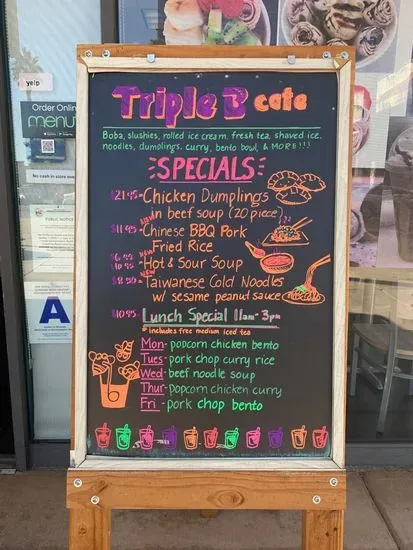 yelp
Order Online
menu
No cash in store
PUBLIC NOTICE
A
Triple B cafe
Boba, slushies, rolled ice cream, fresh tea, shaved ice,
noodles, dumplings, curry, bento bowl, & MORE!!!
SPECIALS
$21.95 - Chicken Dumplings
in beef soup (20 piece)
NEW
$11.95 - Chinese BBQ Pork
Fried Rice
$6.95
10.95 - Hot & Sour Soup
NEW
$8.50 - Taiwanese Cold Noodles
w/ sesame peanut sauce
$10.95 Lunch Special 11am - 3pm
* includes free medium iced tea
Mon - popcorn chicken bento
Tues - pork chop curry rice
Wed - beef noodle soup
Thur - popcorn chicken curry
Fri - pork chop bento